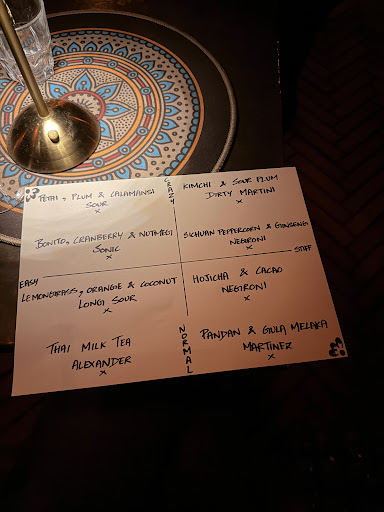 PETAI, PLUM & CALAMANSI
SOUR
x
CRAZY
KIMCHI & SOUR PLUM
DIRTY MARTINI
x
BONITO, CRANBERRY & NUTMEG
SONIC
x
SICHUAN PEPPERCORN & GINSENG
NEGRONI
x
EASY
STAFF
LEMONGRASS, ORANGIE & COCONUT
LONGI SOUR
x
HOJICHA & CACAO
NEGRONI
x
THAI MILK TEA
ALEXANDER
x
NORMAL
PANDAN & GULA MELAKA
MARTINEZ
x